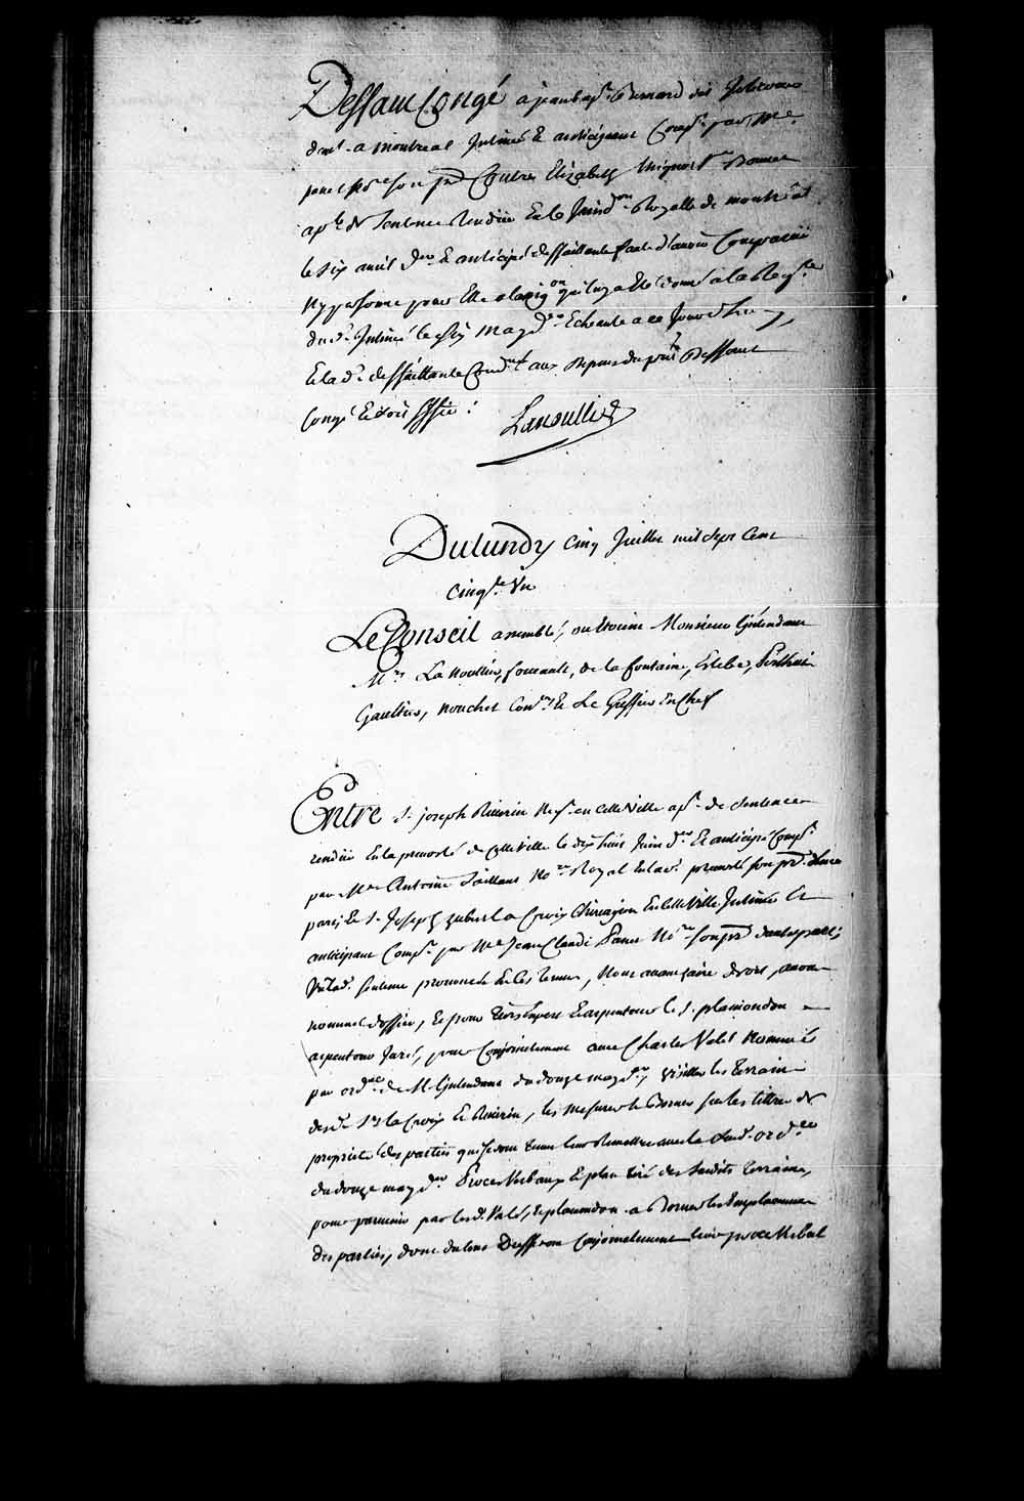 Deffaut Congé a jean bap.te Bernard dit
dem.t a montreal Intimé & anticipant Comp.t par M.e
son p.r Contre Elizabeth
ap.te de Sentence Rendüe En la Jurisd.on Royalle de montreal
le six avril d.er & anticipé deffaillante faute d'avoir Comparu
Ny personne pour Elle a l'assig.on qui luy a Eté donné a la Req.te
dud. Intimé le may d.er Echeante a ce Jourd'huy
Et lad. deffaillante Cond. aux depens du p.nt Deffaut
Congé
Lanoullier
Du lundy Cinq Juillet mil sept Cent
Cinq.te Un
Le Conseil assemblé, ou Etoient Monsieur L'Intendant
M.rs La Noullier, foucault, de la fontaine, Estebe,
Gaultier, nouchet Con.ers & Le Greffier En Chef
Entre S. joseph Riverin Neg.t en cette Ville ap.t de Sentence
rendüe En la prevosté de cette Ville le dix huit Juin d.er Et anticipé Comp.t
par M.e Antoine Saillant No.re Royal En lad. prevosté son p.r d'une
part, Et S. Joseph hubert la Croix Chirurgien En cette Ville Intimé Et
anticipant Comp.t par M.e Jean Claude Panet No.re son p.r d'autre part;
Vu lad. Sentence prononcée En Ces termes, Nous avant faire droit, avons
nommé d'office, & pour tiers Expert & arpenteur le S. plamondon
arpenteur Juré, pour Conjointement avec Charles Nommé
par ord.ce de M. L'Intendant du douze may d.er, Visiter les terrains
desd. S.rs la Croix Et Riverin, les mesurer & Borner sur les titres de
proprieté des parties qui seront tenus leur Remettre avec la Susd. ord.ce
du douze may d.er proces Verbaux & plan tiré des Susdits terrains,
pour parvenir par lesd. & plamondon a Borner les Emplacemens
des parties, dont du tout Dresseront Conjointement leur proces Verbal